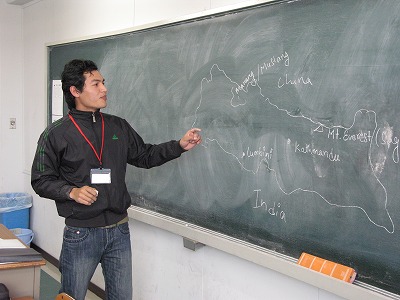 Manang/Mustang
China
Mt. Everest
Lumbini
Kathmandu
India